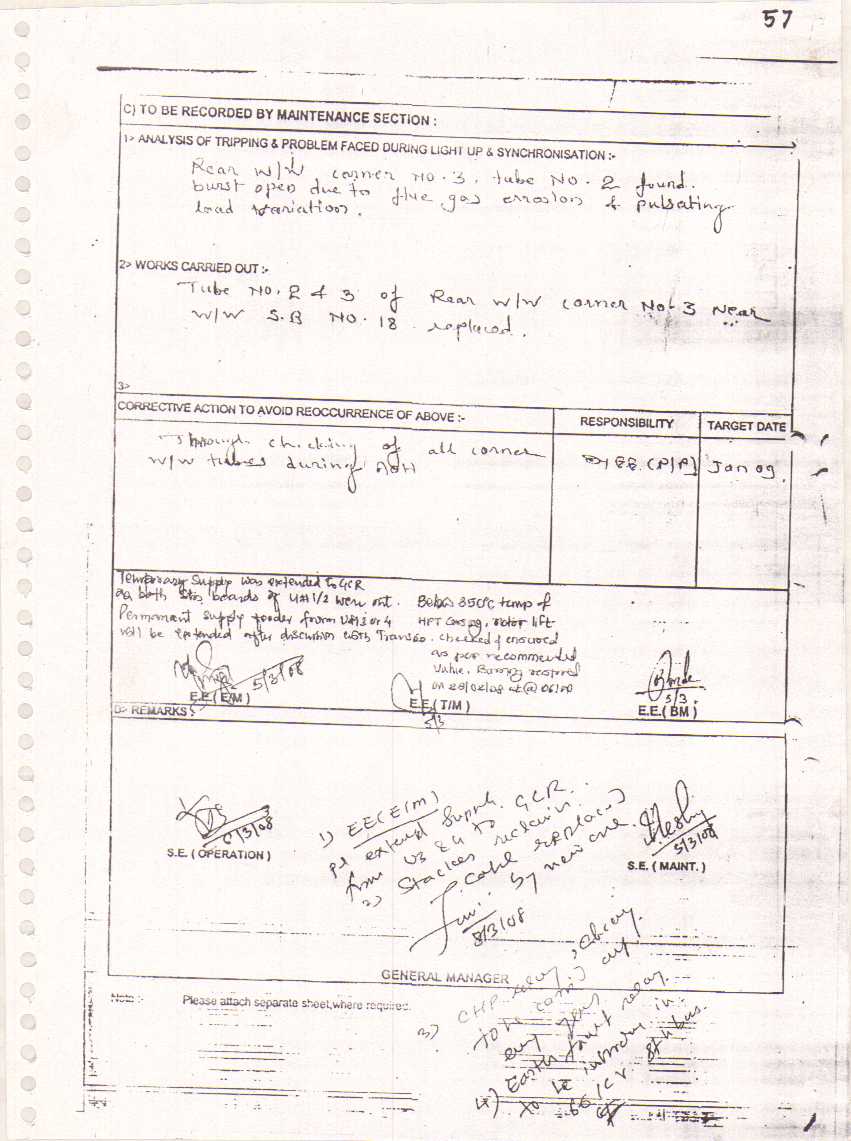 57
C) TO BE RECORDED BY MAINTENANCE SECTION :
1> ANALYSIS OF TRIPPING & PROBLEM FACED DURING LIGHT UP & SYNCHRONISATION :-
Rear W/W corner NO. 3, tube NO. 2 found.
burst open due to flue gas errosion & pulsating
load variation.
2> WORKS CARRIED OUT :-
Tube NO. 2 & 3 of Rear W/W corner NO. 3 Near
W/W S.B NO. 18 replaced.
3>
CORRECTIVE ACTION TO AVOID REOCCURRENCE OF ABOVE :-
RESPONSIBILITY
TARGET DATE
Through checking of all corner
W/W tubes during AOH
Dy EE (P/P)
Jan 09.
Temporary Supply was extended to GCR
as both Stn boards of U#1/2 were out.
Permanent supply feeder from U#3 or 4
will be extended after discussion with Transco.
Below 350°C temp of
HPT casing, rotor lift
checked & ensured
as per recommended
Value, Barring restored
on 28/02/08 at @ 06/00
5/3/08
E.E.( E/M )
E.E.( T/M )
5/3
5/3.
E.E.( BM )
D> REMARKS :-
6/3/08
S.E. ( OPERATION )
1) EE(E/M)
pl extend supply GCR.
from U3 & 4 to
2) Stacker reclaim
cable replaced
by new one.
8/3/08
5/3/08
S.E. ( MAINT. )
GENERAL MANAGER
Note :-
Please attach separate sheet,where required.
3) CHP relay
to be carried out
every year
4) Earth fault relay
to be in